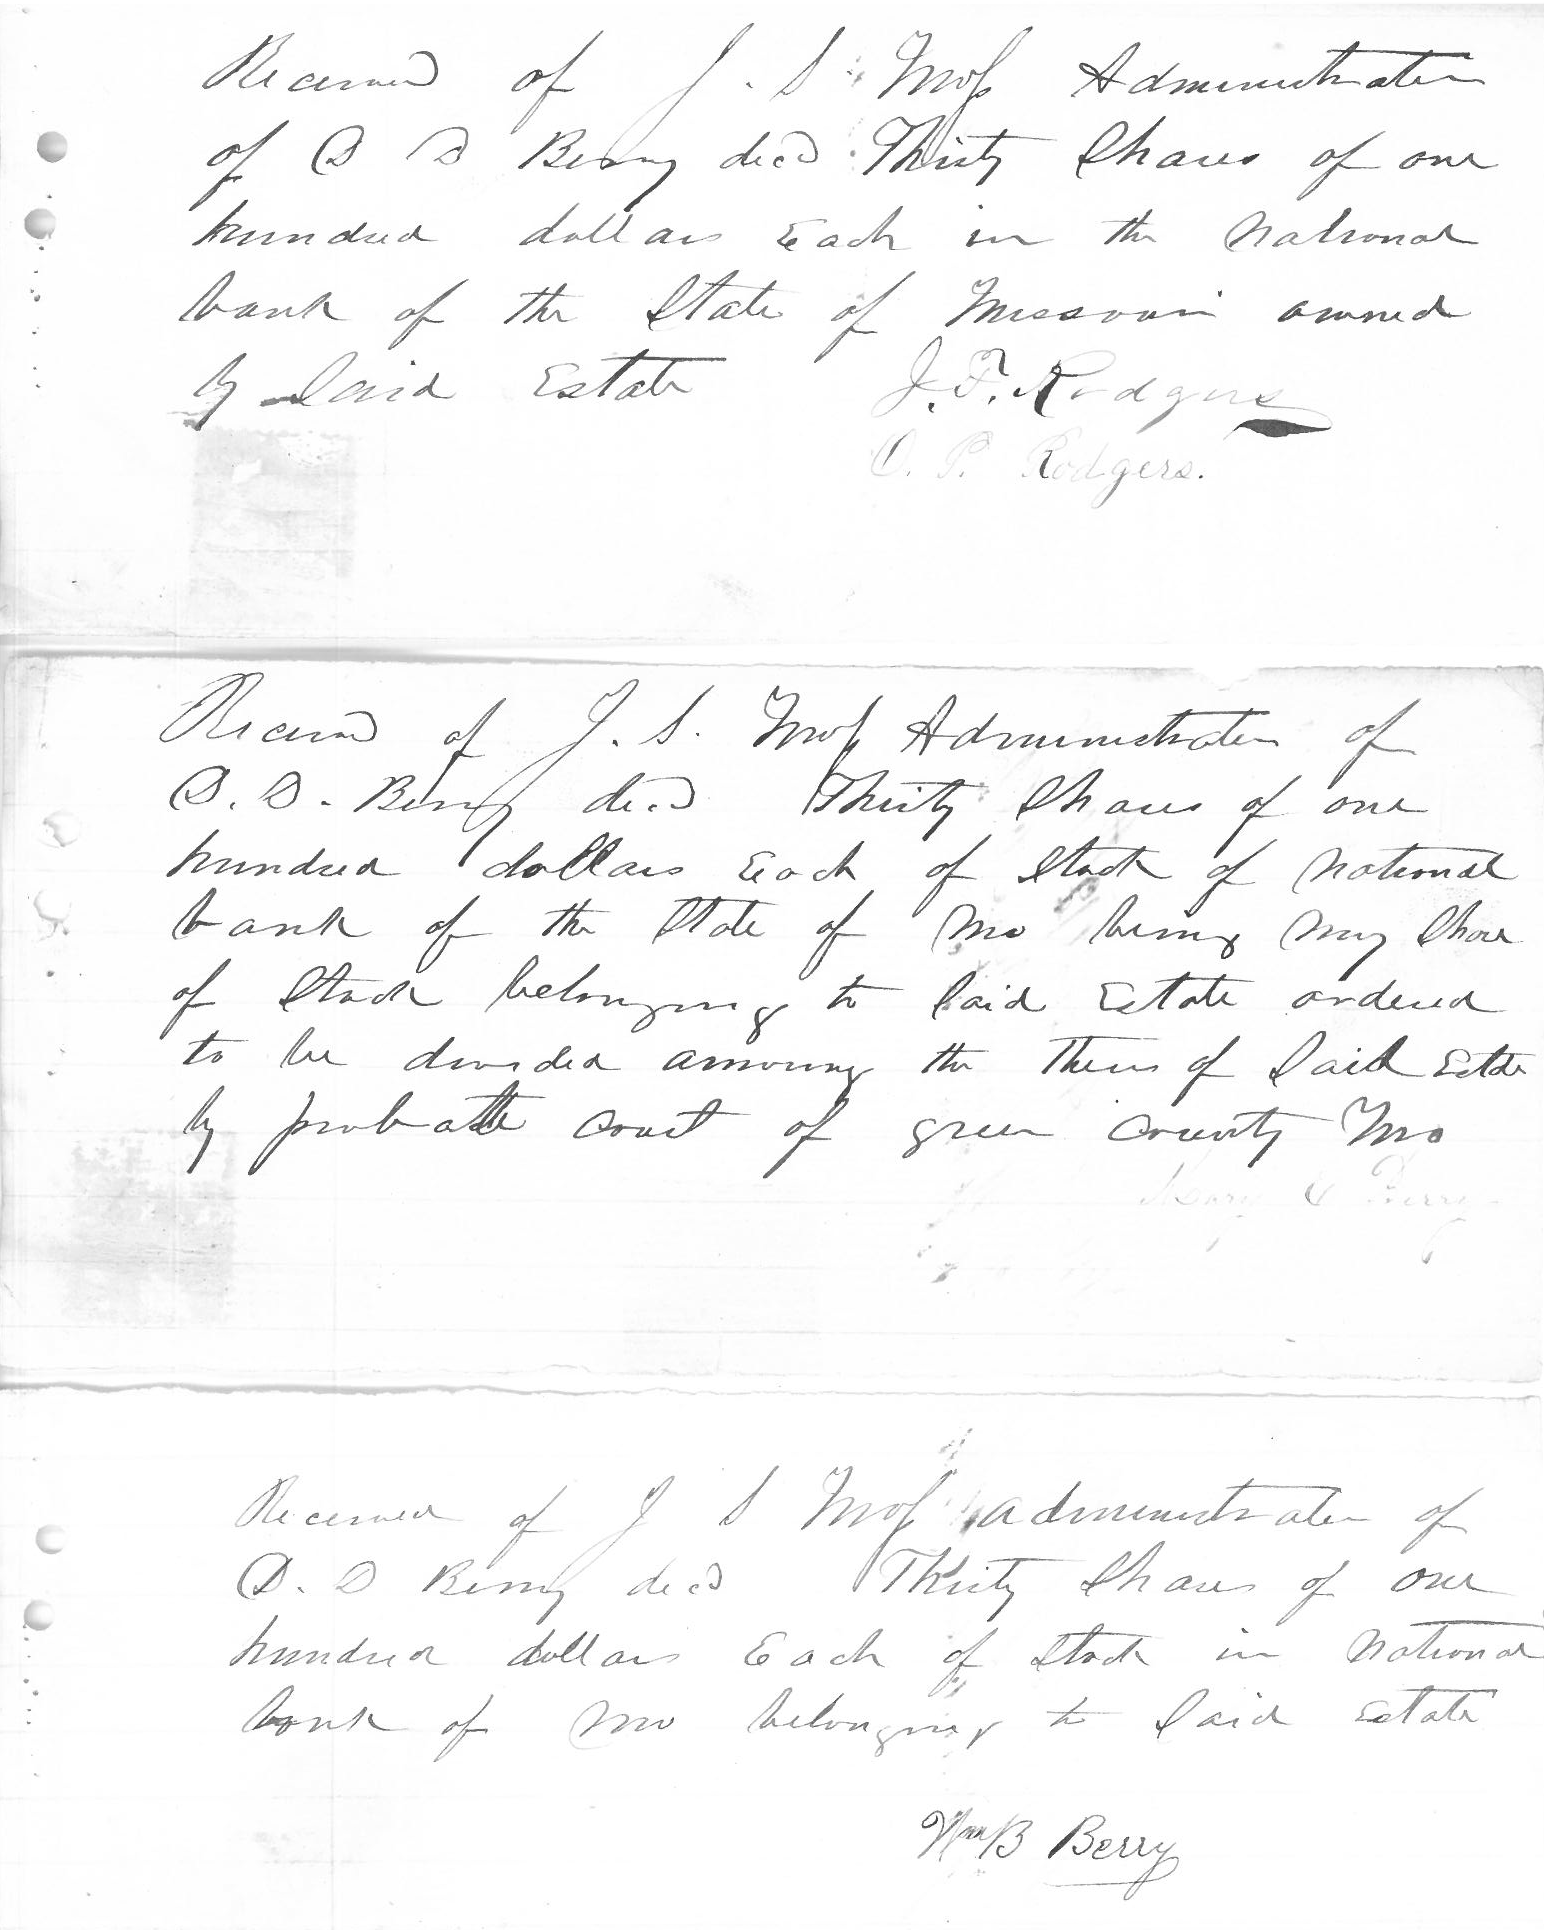 Received of J. S Moss Administrator
of D D Berry decd Thirty Shares of one
hundred dollars Each in the National
bank of the State of Missouri owned
by Said Estate
J. F. Rodgers
O. P. Rodgers.
Received of J. S. Moss Administrator of
D. D. Berry decd Thirty Shares of one
hundred dollars Each of Stock of National
bank of the State of Mo being my Share
of Stock belonging to Said Estate ordered
to be divided amoung the Heirs of Said Estate
by probatte court of green county Mo
Mary Berry
Received of J S Moss administrator of
D. D Berry decd Thirty Shares of one
hundred dollars Each of Stock in National
bank of Mo belonging to Said Estate
Wm B Berry